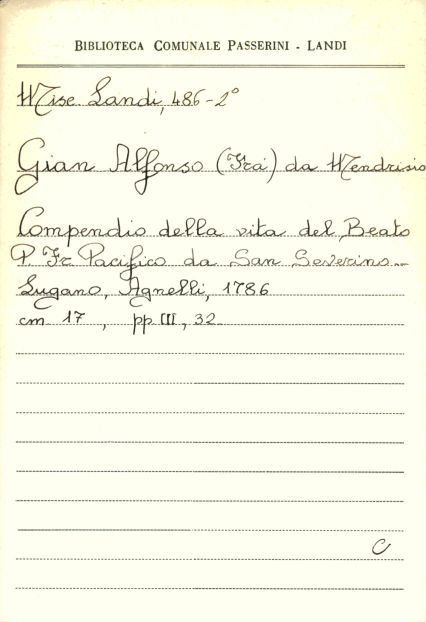 BIBLIOTECA COMUNALE PASSERINI - LANDI
Misc. Landi, 486-2°
Gian Alfonso (Fra) da Mendrisio
Compendio della vita del Beato
P. Fr Pacifico da San Severino_
Lugano, Agnelli, 1786
cm 17, pp III, 32
C